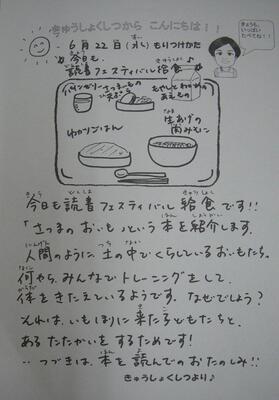 きゅうしょくしつから こんにちは!!
きょうも、
いっぱい
たべてね!!
6月22日(水)もりつけかた
今日も
読書フェスティバル給食
さつまいもの
天ぷら
もやしとわかめの
あえもの
生あげの
肉みそに
わかめごはん
今日も読書フェスティバル給食です!!
「さつまのおいも」という本を紹介します。
人間のように土の中でくらしているおいもたち。
何やら、みんなでトレーニングをして、
体をきたえているようです。なぜでしょう?
それは、いもほりに来た子どもたちと、
あるたたかいをするためです!
…つづきは、本を読んでのおたのしみ!!
きゅうしょくしつより♪